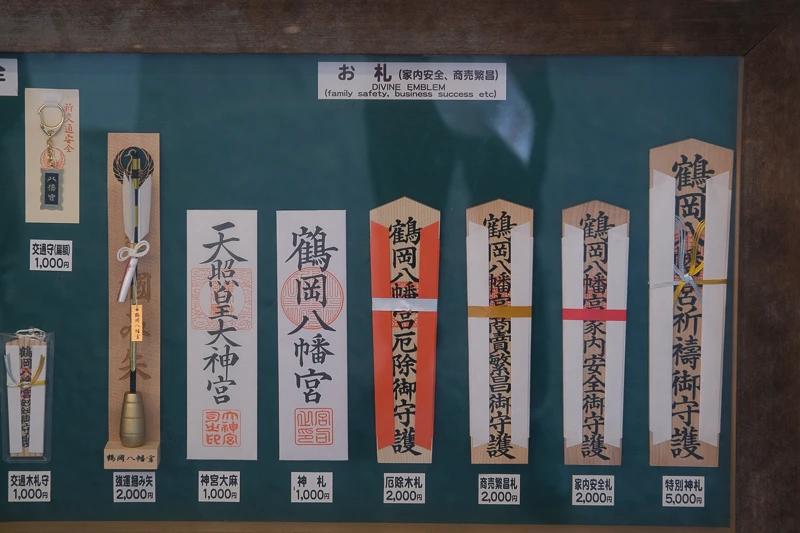 全
お 札 (家内安全、商売繁昌)
DIVINE EMBLEM
(family safety, business success etc)
祈交通安全
八幡宮
交通守(扁額)
1,000円
交通木札守
1,000円
鶴岡八幡宮
強運掴み矢
2,000円
天照皇大神宮
神宮大麻
1,000円
鶴岡八幡宮
神 札
1,000円
鶴岡八幡宮厄除御守護
厄除木札
2,000円
鶴岡八幡宮商賣繁昌御守護
商売繁昌札
2,000円
鶴岡八幡宮家内安全御守護
家内安全札
2,000円
鶴岡八幡宮祈禱御守護
特別神札
5,000円